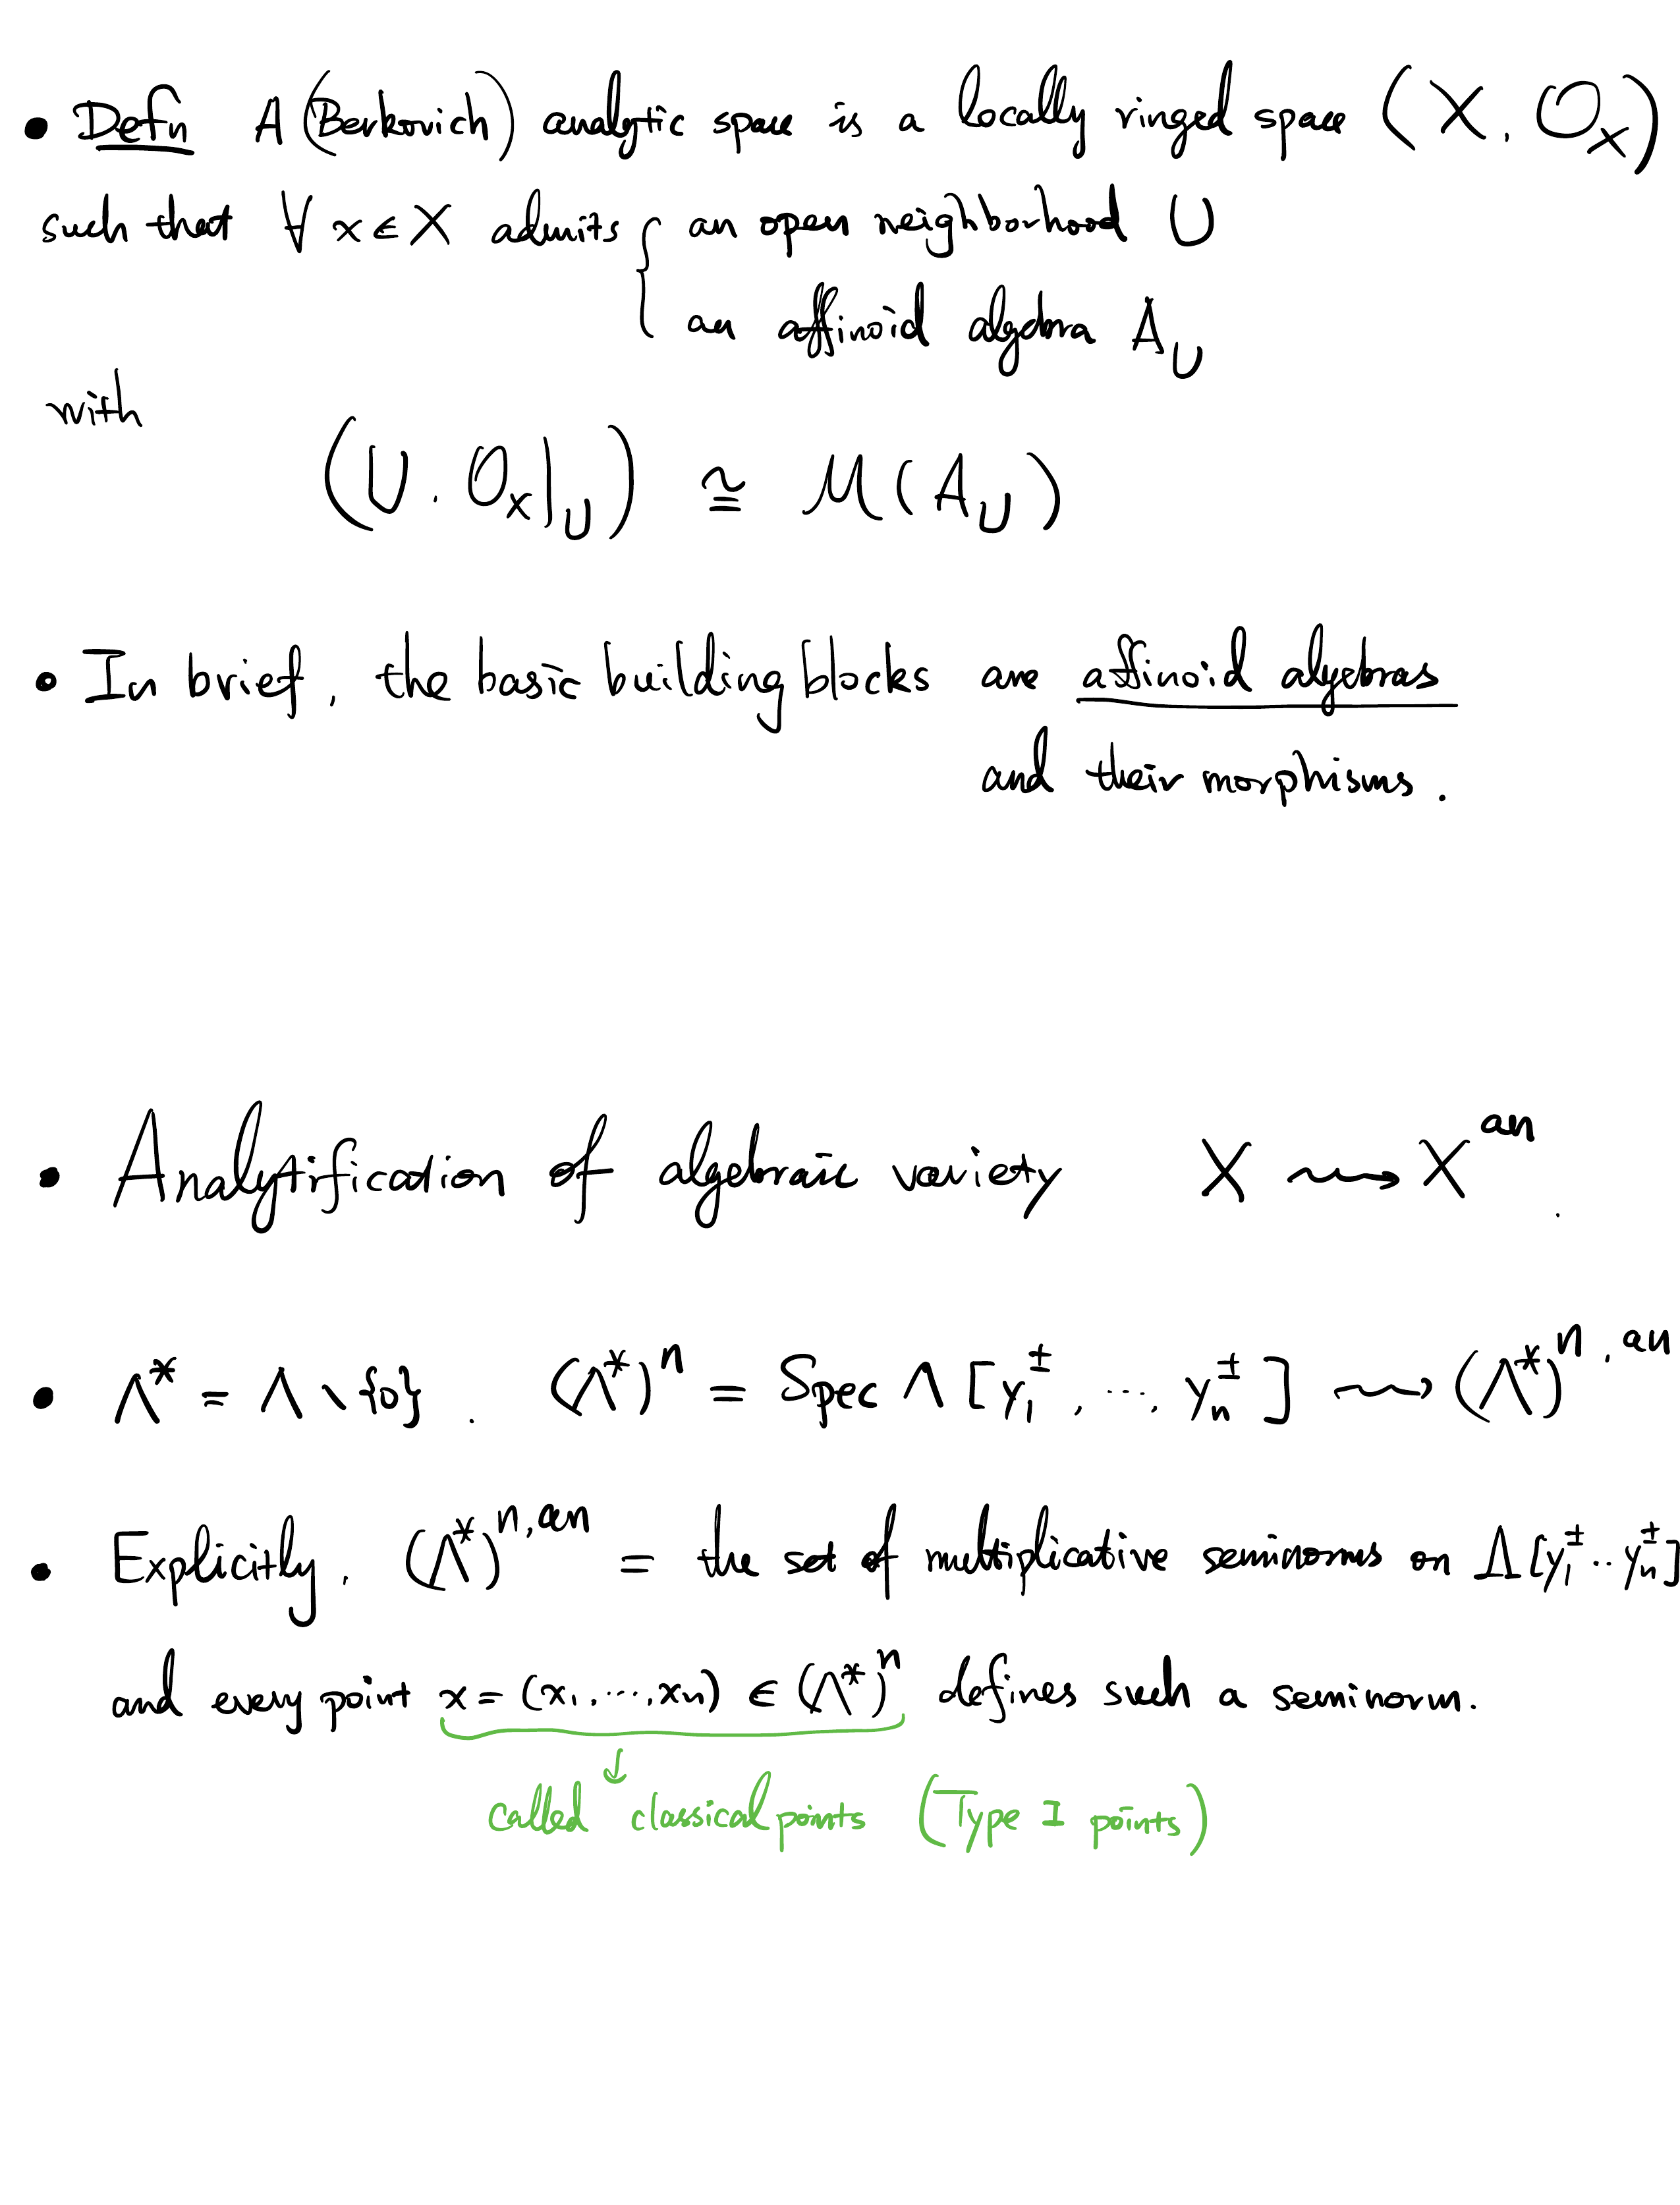 • Defn A (Berkovich) analytic space is a locally ringed space (X, O_X)
such that ∀ x ∈ X admits { an open neighborhood U
an affinoid algebra A_U
with
(U, O_X|_U) ≅ M(A_U)
• In brief, the basic building blocks are affinoid algebras
and their morphisms.
• Analytification of algebraic variety X ⇝ X^an.
• Λ* = Λ \ {0}. (Λ*)^n = Spec Λ[y_1^±, ..., y_n^±] ⇝ (Λ*)^{n, an}
• Explicitly, (Λ*)^{n, an} = the set of multiplicative seminorms on Λ[y_1^± .. y_n^±]
and every point x = (x_1, ..., x_n) ∈ (Λ*)^n defines such a seminorm.
↓
called classical points (Type I points)